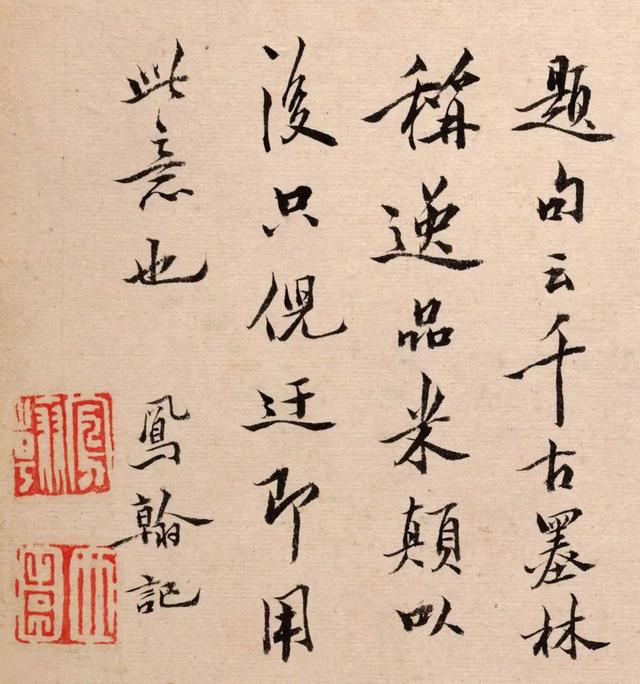 題句云千古墨林
稱逸品米顛以
後只倪迂即用
此意也
鳳翰記